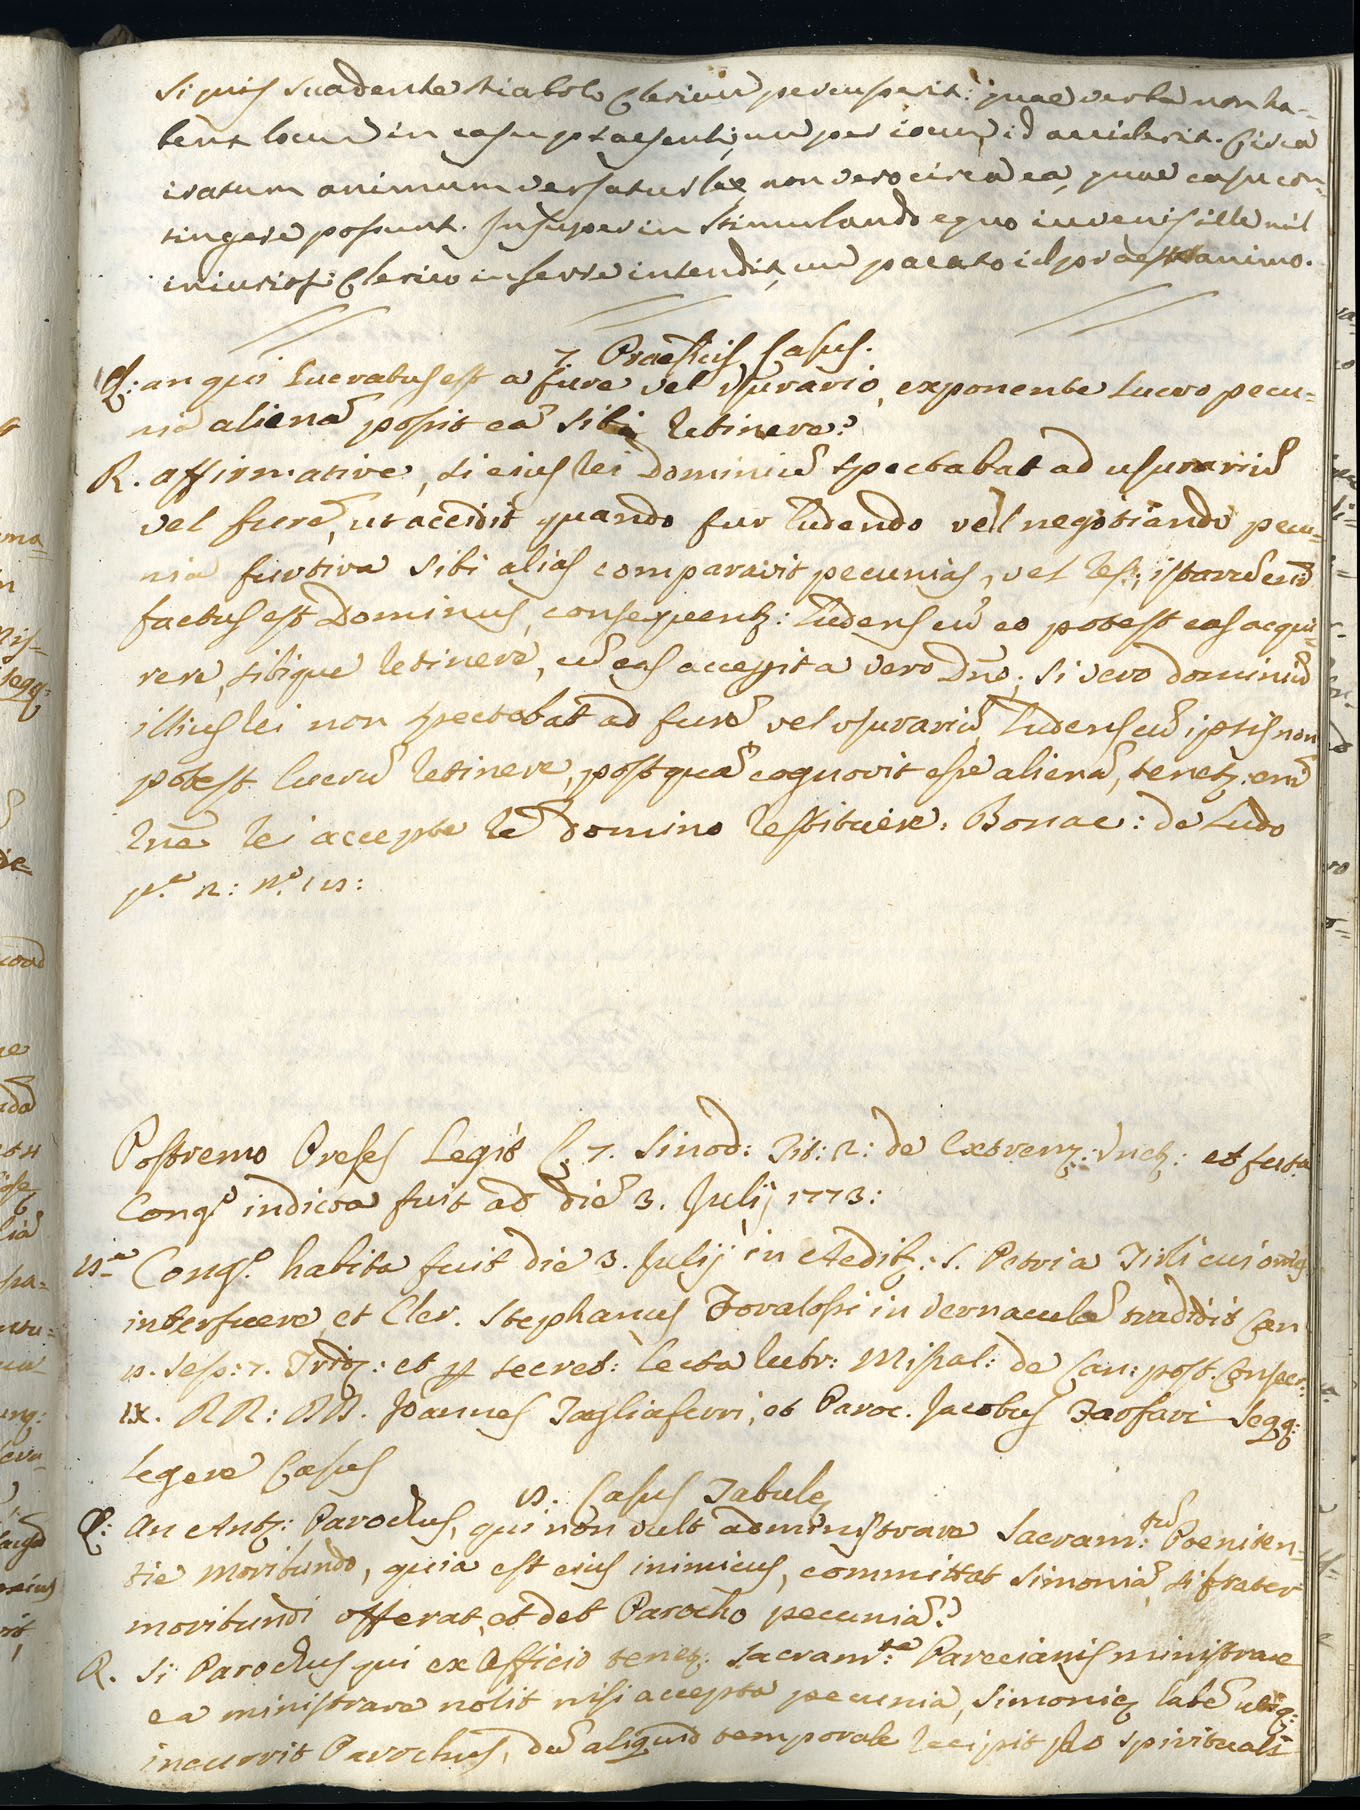 Si quis suadente diabolo Clericum percusserit: quae verba non ha-
bent locum in casu praesenti, cum per iocum id acciderit. Circa
iratum animum versatur lex non vero circa ea, quae casu con-
tingere possunt. Insuper in stimulando equo iuvenis ille nil
iniuriose Clerico inferre intendit, cum pacato id praestet animo.
7. Praesulis Casus.
Q: an qui lucratus est a fure vel usurario, exponente lucro pecu=
niã alienã possit eã sibi retinere?
R. affirmative, si eius rei Dominiũ spectabat ad usurariũ
vel furẽ, ut accidit quando fur ludendo vel negotiando pecu=
nia furtiva sibi alias comparavit pecunias, vel res; istarũ enĩ
factus est Dominus, consequent: ludens cũ eo potest eas acqui-
rere, sibique retinere, cũ eas accepit a vero Dño; si vero dominiũ
illius rei non spectabat ad furẽ vel usurariũ ludens cũ ipsis non
potest lucrũ retinere, postquã cognovit esse alienã, tenet: enĩ
rñe rei acceptę rẽ domino restituere. Bonac: de Ludo
p.ª 2: n.º 12:
Postremo Preses Legit C. 7. Sinod: Tit: 2: de Extrem: Unct: et futura
Cong.º indicta fuit ad diẽ 3. Julij 1773:
12.ª Cong.º habita fuit die 3. Julij in Aedib: S. Petri a Tirli cui omẽs
interfuere et Cler. Stephanus Tovalossi in vernaculã tradidit Can
2. Sess: 7. Trid: et secret: lecta rubr: Missal: de Can: post Consecr:
ix. RR: DD. Joannes Tagliaferri, et Paroc. Jacobus Farfari seqq:
legere Casus
12. Casus Tabulę
Q: An Ant: Parochus, qui non vult administrare Sacram:tũ Poeniten-
tie moribundo, quia est eius inimicus, committat simoniã, si frater
moribundi offerat, et det Parocho pecuniã?
R. Si Parochus qui ex Officio tenet: Sacram:ta Parecianis ministrare
ea ministrare nolit nisi accepta pecunia, simonię labẽ utiq:
incurrit Parochus, dũ aliquid temporale recipit pro spirituali